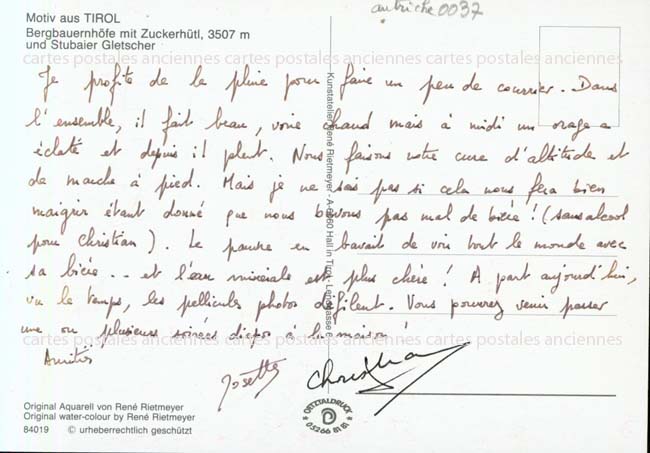 autriche 0037
Motiv aus TIROL
Bergbauernhöfe mit Zuckerhütl, 3507 m
und Stubaier Gletscher
cartes postales anciennes cartes postales anciennes cartes postales anciennes
Je profite de la pluie pour faire un peu de courrier.. Dans
l'ensemble, il fait beau, voire chaud mais à midi un orage a
éclaté et depuis il pleut. Nous faisons notre cure d'altitude et
de marche à pied. Mais je ne sais pas si cela nous fera bien
maigrir étant donné que nous buvons pas mal de bière ! (sans alcool
pour Christian). Le pauvre en bavait de voir tout le monde avec
sa bière... et l'eau minérale est plus chère ! A part aujourd'hui,
vu le temps, les pellicules photos défilent. Vous pourrez venir passer
une ou plusieurs soirées diapos à la maison !
Amitiés
Josette Christian
Kunstatelier René Rietmeyer - A-6060 Hall in Tirol
ÖTZTALDRUCK
05266 81 81
Original Aquarell von René Rietmeyer
Original water-colour by René Rietmeyer
84019 © urheberrechtlich geschützt